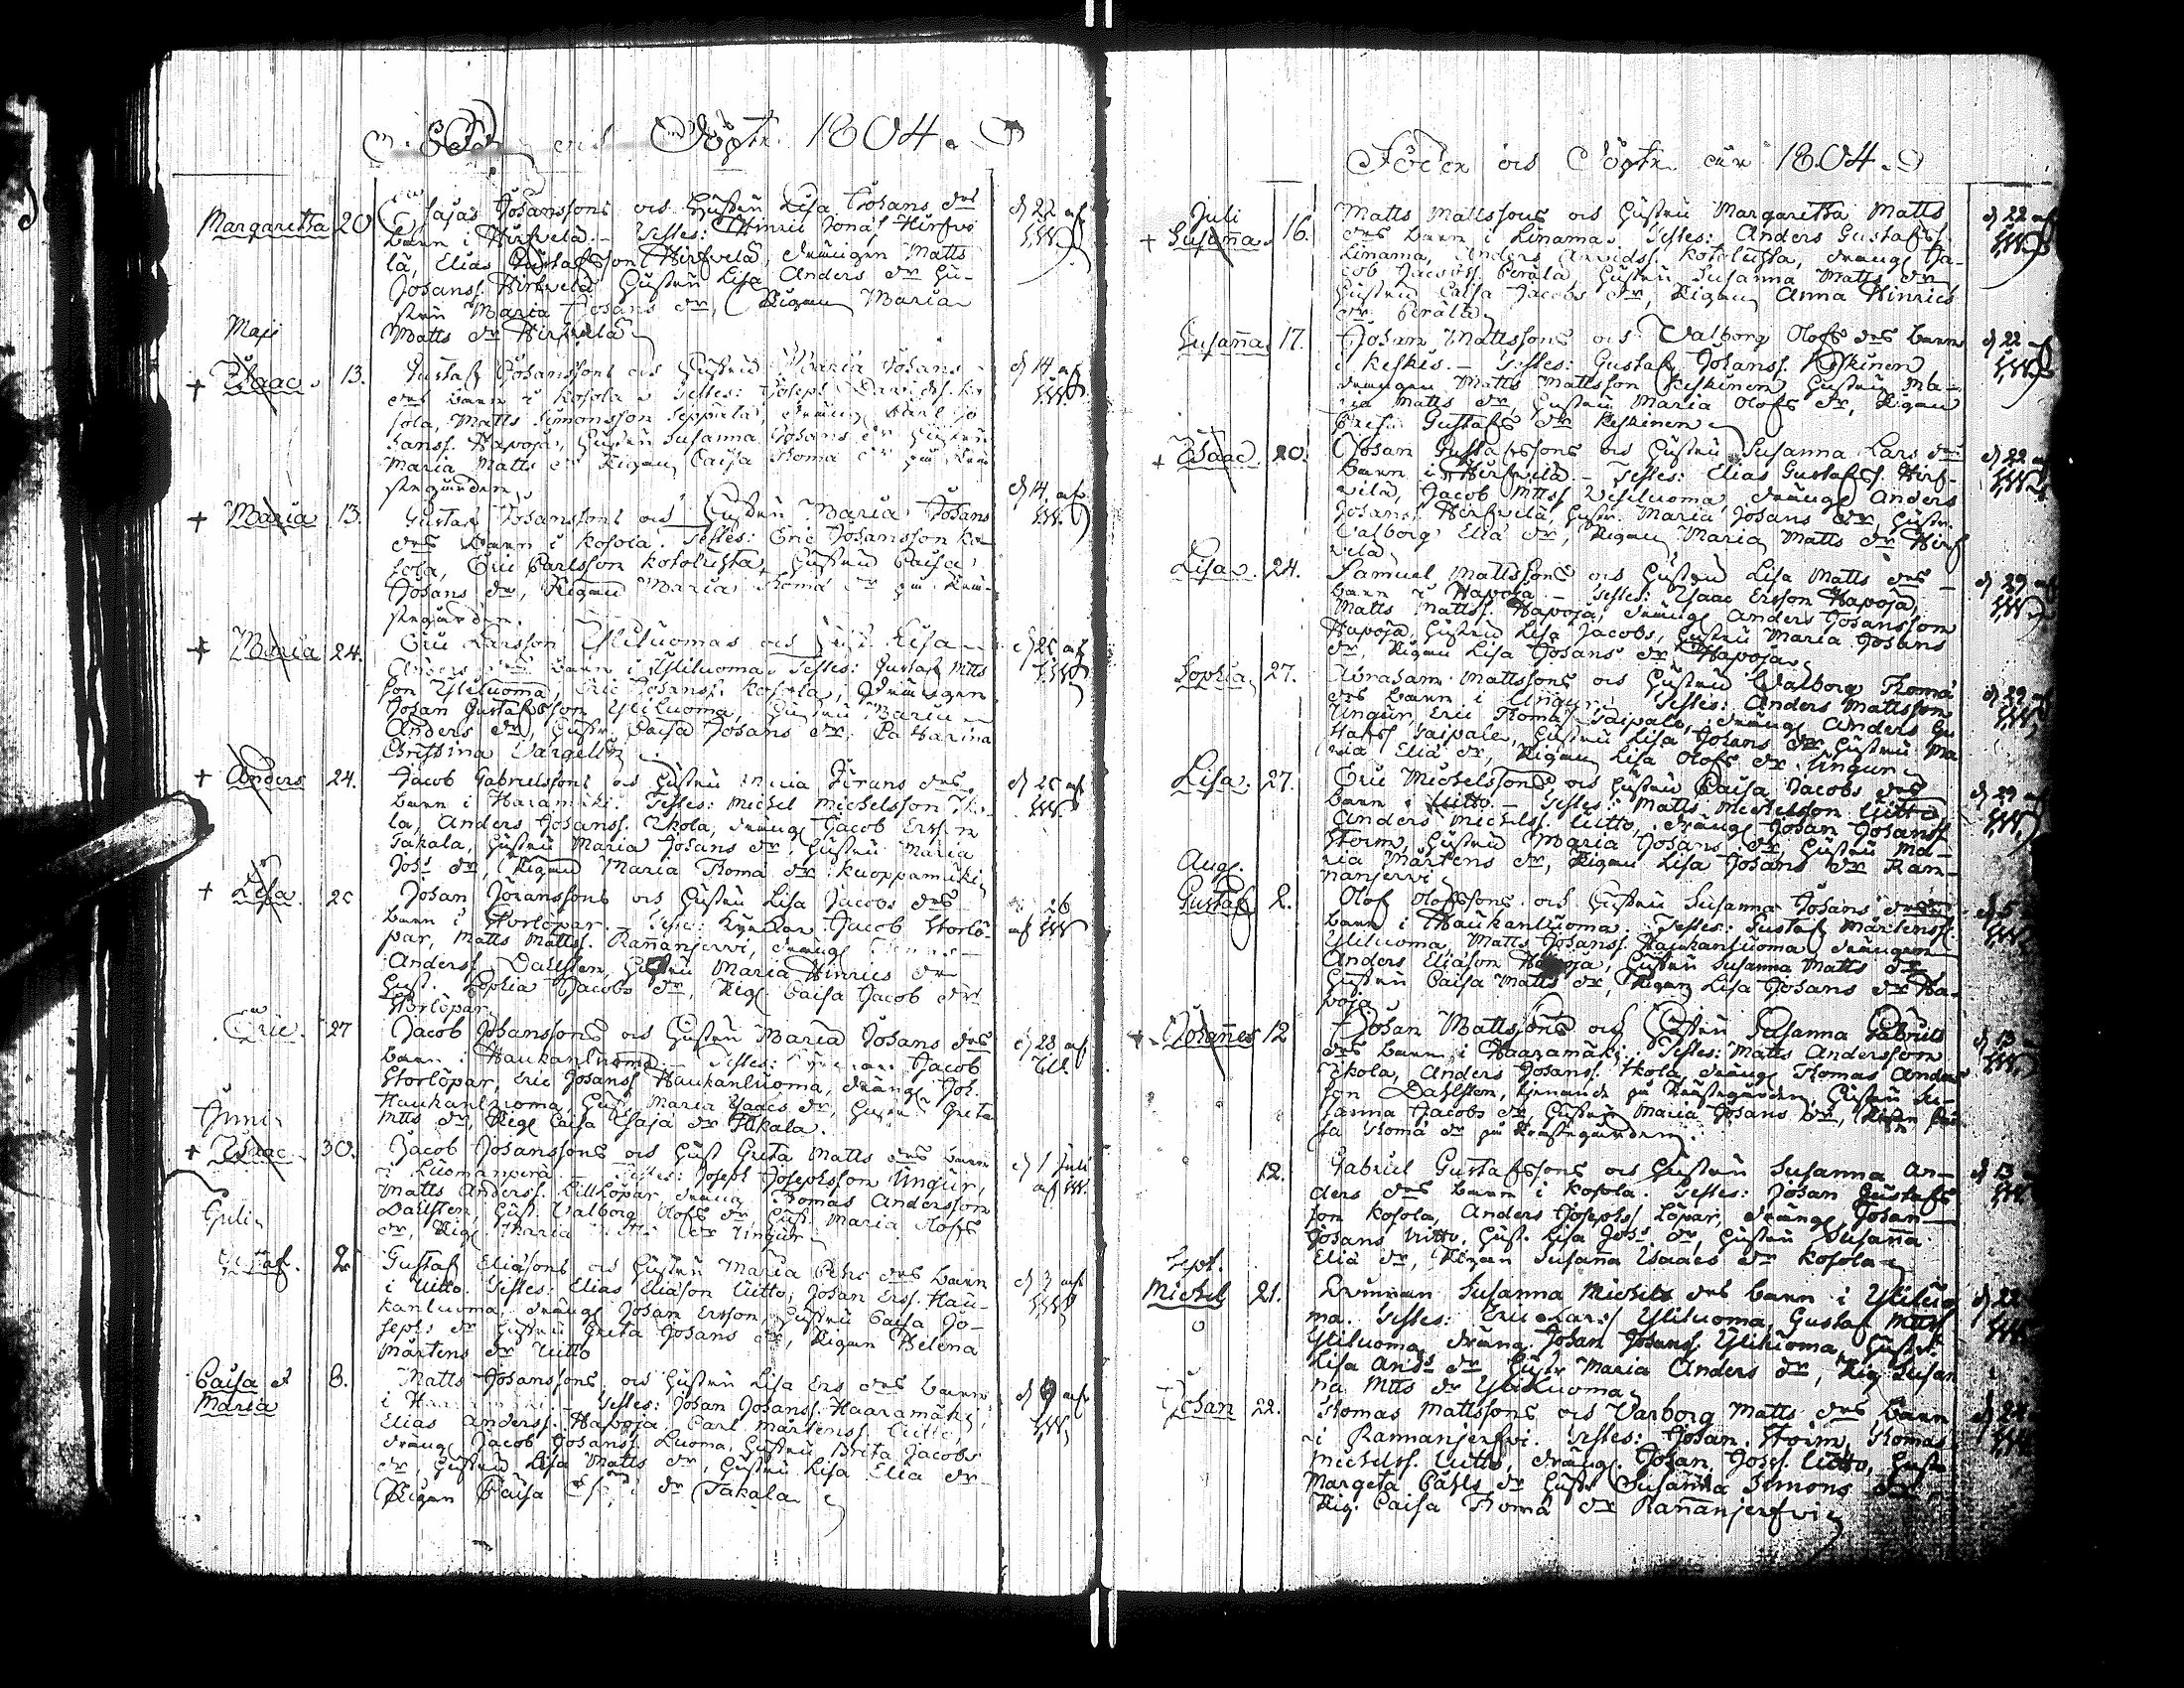 och Döpte 1804.
Margaretha 20 Esaias Johanssons och Hustrun Lisa Johans drs d 22 af
barn i Hirfvelä. Testes: Hinric Jonass. Hirfve
lä, Elias Gustafsson Hirfvelä, drängen Matts
Johanss. Hirfvelä Hustrun Lisa Anders dr Hu-
strun Maria Johans dr, Pigan Maria
Maji Matts dr Hirfvelä
+ Isaac 13. Gustaf Johanssons och Hustrun Maria Johans d 14 af
drs barn i Kosola Testes: Joseph Davidss. Ko
sola, Matts Simonsson Seppälä, dräng Carl Jo
hanss. Hapoja, Hustrun Susanna Johans dr Hustrun
Maria Matts dr Pigan Caisa Thomæ dr på Præ
stegården
+ Maria 13. Gustaf Johanssons och Hustrun Maria Johans d 14 af
drs barn i Kosola. Testes: Eric Johansson Ko-
sola, Eric Carlsson Kotoluhta, Hustrun Caisa
Johans dr, Pigan Maria Thomæ dr på Præ-
stegården.
+ Maria 24. Eric Larsson Yliluomas och Lisa d 25 af
Anders drs barn i Yliluoma. Testes: Gustaf Mtts
son Yliluoma, Eric Johanss. Kosola, Drängen
Johan Gustafsson Yliluoma, Hustrun Maria
Anders dr, Hustr. Caisa Johans dr,
Christina Vargelin
+ Anders 24. Jacob Gabrielssons och Hustrun Maria Jörans drs d 25 af
barn i Haramäki. Testes: Michel Michelsson Iko-
la, Anders Johanss. Ikola, dräng Jacob Erss. n
Takala, Hustrun Maria Johans dr, Hustrun Maria
Johs dr, Pigan Maria Thomæ dr Kuoppamäki
+ Lisa. 25 Johan Jöranssons och Hustrun Lisa Jacobs drs 26
barn i Storlöpar. Testes: Jacob Storlö-
par, Matts Mattss. Rannanjervi, dräng
Anderss. Dahlsten, Hustrun Maria Hinrics dr
Hust. Sophia Jacobs dr, Pig. Caisa Jacob dr
Storlöpar.
Eric. 27 Jacob Johanssons och Hustrun Maria Johans drs d 28 af
barn i Haukanluoma. Testes: Jacob
Storlöpar, Eric Johanss Haukanluoma, dräng Joh.
Haukanluoma, Hust. Maria Isaacs dr, Hustrun Greta
Junii Mtts dr, Pig. Caisa Esajæ dr Takala.
+ Isaac 30. Jacob Johanssons och Hust Greta Matts drs barn d 1 Juli
i Luomanperä. Testes: Joseph Josephsson Ungur,
Matts Anderss. Lillköpar, dräng Thomas Andersson
Dahlsten, Hust. Valborg Olofs dr Hust. Maria Olofs
Julii dr, Pig. Maria dr Ungur
Gustaf. 2. Gustaf Eliæsons och Hustrun Maria Pehrs drs barn d 3 af
i Uitto. Testes: Elias Eliæson Uitto, Johan Erss. Hau-
kanluoma, dräng Johan Ersson, Hustrun Caisa Jo-
sephs dr Hustrun Greta Johans dr, Pigan Helena
Mårtens dr Uitto
Caisa et 8. Matts Johanssons och Hustrun Lisa Ers drs barn d 9 af
Maria i Testes: Johan Johanss. Haaramäki,
Elias Anderss. Hapoja, Carl Mårtenss. Uitto,
dräng Jacob Johanss. Luoma, Hustrun Brita Jacobs
dr, Hustrun Lisa Matts dr, Hustrun Lisa Eliæ dr
Pigan Caisa dr Takala
Födde och Döpte åår 1804.
Juli
+ Susanna. 16. Matts Mattssons och Hustrun Margaretha Matts d 22 af
drs barn i Linama. Testes: Anders Gustafss.
Linama, Anders Arvidss. Kotoluhta, dräng Ja-
cob Jacobss. Perälä Hustrun Susanna Matts dr
Hustrun Caisa Jacobs dr, Pigan Anna Hinrics
dr Perälä
Susanna. 17. Johan Mattssons och Valborg Olofs drs barn d 22 af
i Keskis. Testes: Gustaf Johanss. Keskinen
drängen Matts Mattsson Keskinen, Hustrun Ma-
ria Matts dr, Hustrun Maria Olofs dr, Pigan
Gustafs dr Keskinen
+ Isaac 20. Johan Gustafssons och Hustrun Susanna Lars drs d 22 af
barn i Hirfvelä. Testes: Elias Gustafss. Hirf-
velä, Jacob Mtts Ylituoma dräng Anders
Johanss. Hirfvelä, Hustr. Maria Johans dr, Hustr.
Valborg Eliæ dr, Pigan Maria Matts dr Hirf
velä
Lisa. 24. Samuel Mattssons och Hustrun Lisa Matts drs d 29 af
barn i Hapoja. Testes: Isaac Ersson Hapoja,
Matts Mattss. Hapoja, dräng Anders Johansson
Hapoja, Hustrun Lisa Jacobs, Hustrun Maria Johans
dr, Pigan Lisa Johans dr Hapoja
Sophia 27. Abraham Mattssons och Hustrun Valborg Thomæ d 29 af
drs barn i Ungur. Testes: Anders Mattsson
Ungur, Eric Thomæs. Taipale, dräng Anders Gu
stafss Taipale, Hustrun Lisa Johans dr, Hustrun Ma
ria Eliæ dr, Pigan Lisa Olofs dr Ungur
Lisa. 27. Eric Michelssons och Hustrun Caisa Jacobs drs d 29 af
barn i Uitto. Testes: Matts Michelsson Uitto
Anders Michelss. Uitto, dräng Johan Johanss
Storm, Hustrun Maria Johans dr, Hustrun Ma-
Aug. ria Mårtens dr, Pigan Lisa Johans dr Ran-
nanjervi
Gustaf 2. Olof Olofssons och Hustrun Susanna Johans drs d 5
barn i Haukanluoma. Testes: Gustaf Mårtenss.
Ylituoma, Matts Johanss. Haukanluoma drängen
Anders Eliæson Hapoja, Hustrun Susanna Matts dr
Hustrun Caisa Matts dr, Pigan Lisa Johans dr Ha-
poja
+ Johannes 12 Johan Mattssons och Hustrun Susanna Gabriels d 13
drs barn i Haaramäki. Testes: Matts Andersson
Ikola, Anders Johanss. Ikola, dräng Thomas Anders
son Dahlsten, tjenande på Prästegården, Hustrun Su-
sanna Jacobs dr, Hustrun Maria Johans dr, Pigan Cai
sa Thomæ dr på Prästegården.
12. Gabriel Gustafssons och Hustrun Susanna An- d 13
ders drs barn i Kosola. Testes: Johan Gustafs
son Kosola, Anders Josephss Löpar, dräng Johan
Johans Uitto, Hust. Lisa Johs dr, Hustrun Susanna
Sept. Eliæ dr, Pigan Susanna Isaacs dr Kosola
Michel 21. Qvinnan Susanna Michels drs barn i Ylilug d 22
ma. Testes: Eric Larss Ylituoma, Gustaf Mttss
Ylituoma, dräng Johan Johanss. Ylituoma, Hustr.
Lisa Ands dr, Hustr Maria Anders dr, Pig Susan
na Mtts dr Ylituoma
Johan 22. Thomas Mattssons och Varborg Matts drs barn d 24
i Rannanjerfvi. Testes: Johan Storm, Thomas
Michelss. Uitto, dräng. Johan Johss. Uitto, Hustr
Margeta Carls dr Hustr Susanna Simons dr
Pig. Caisa Thomæ dr Rannanjerfvi